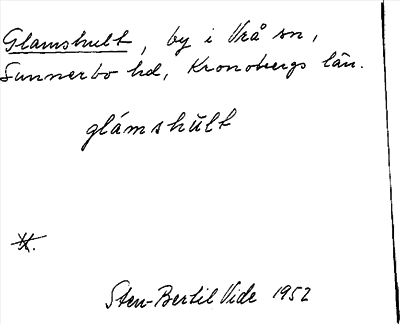 Glamshult, by i Vrå sn,
Sunnerbo hd, Kronobergs län.
glámshult
Sten-Bertil Vide 1952